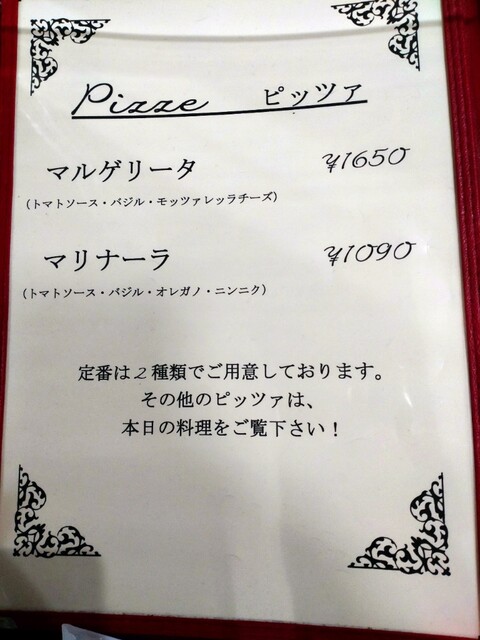 Pizze ピッツァ
マルゲリータ ¥1650
(トマトソース・バジル・モッツァレッラチーズ)
マリナーラ ¥1090
(トマトソース・バジル・オレガノ・ニンニク)
定番は2種類でご用意しております。
その他のピッツァは、
本日の料理をご覧下さい!